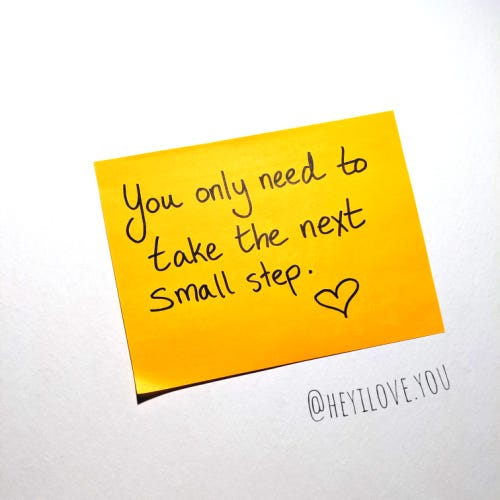 You only need to
take the next
small step.
@HEYILOVE.YOU